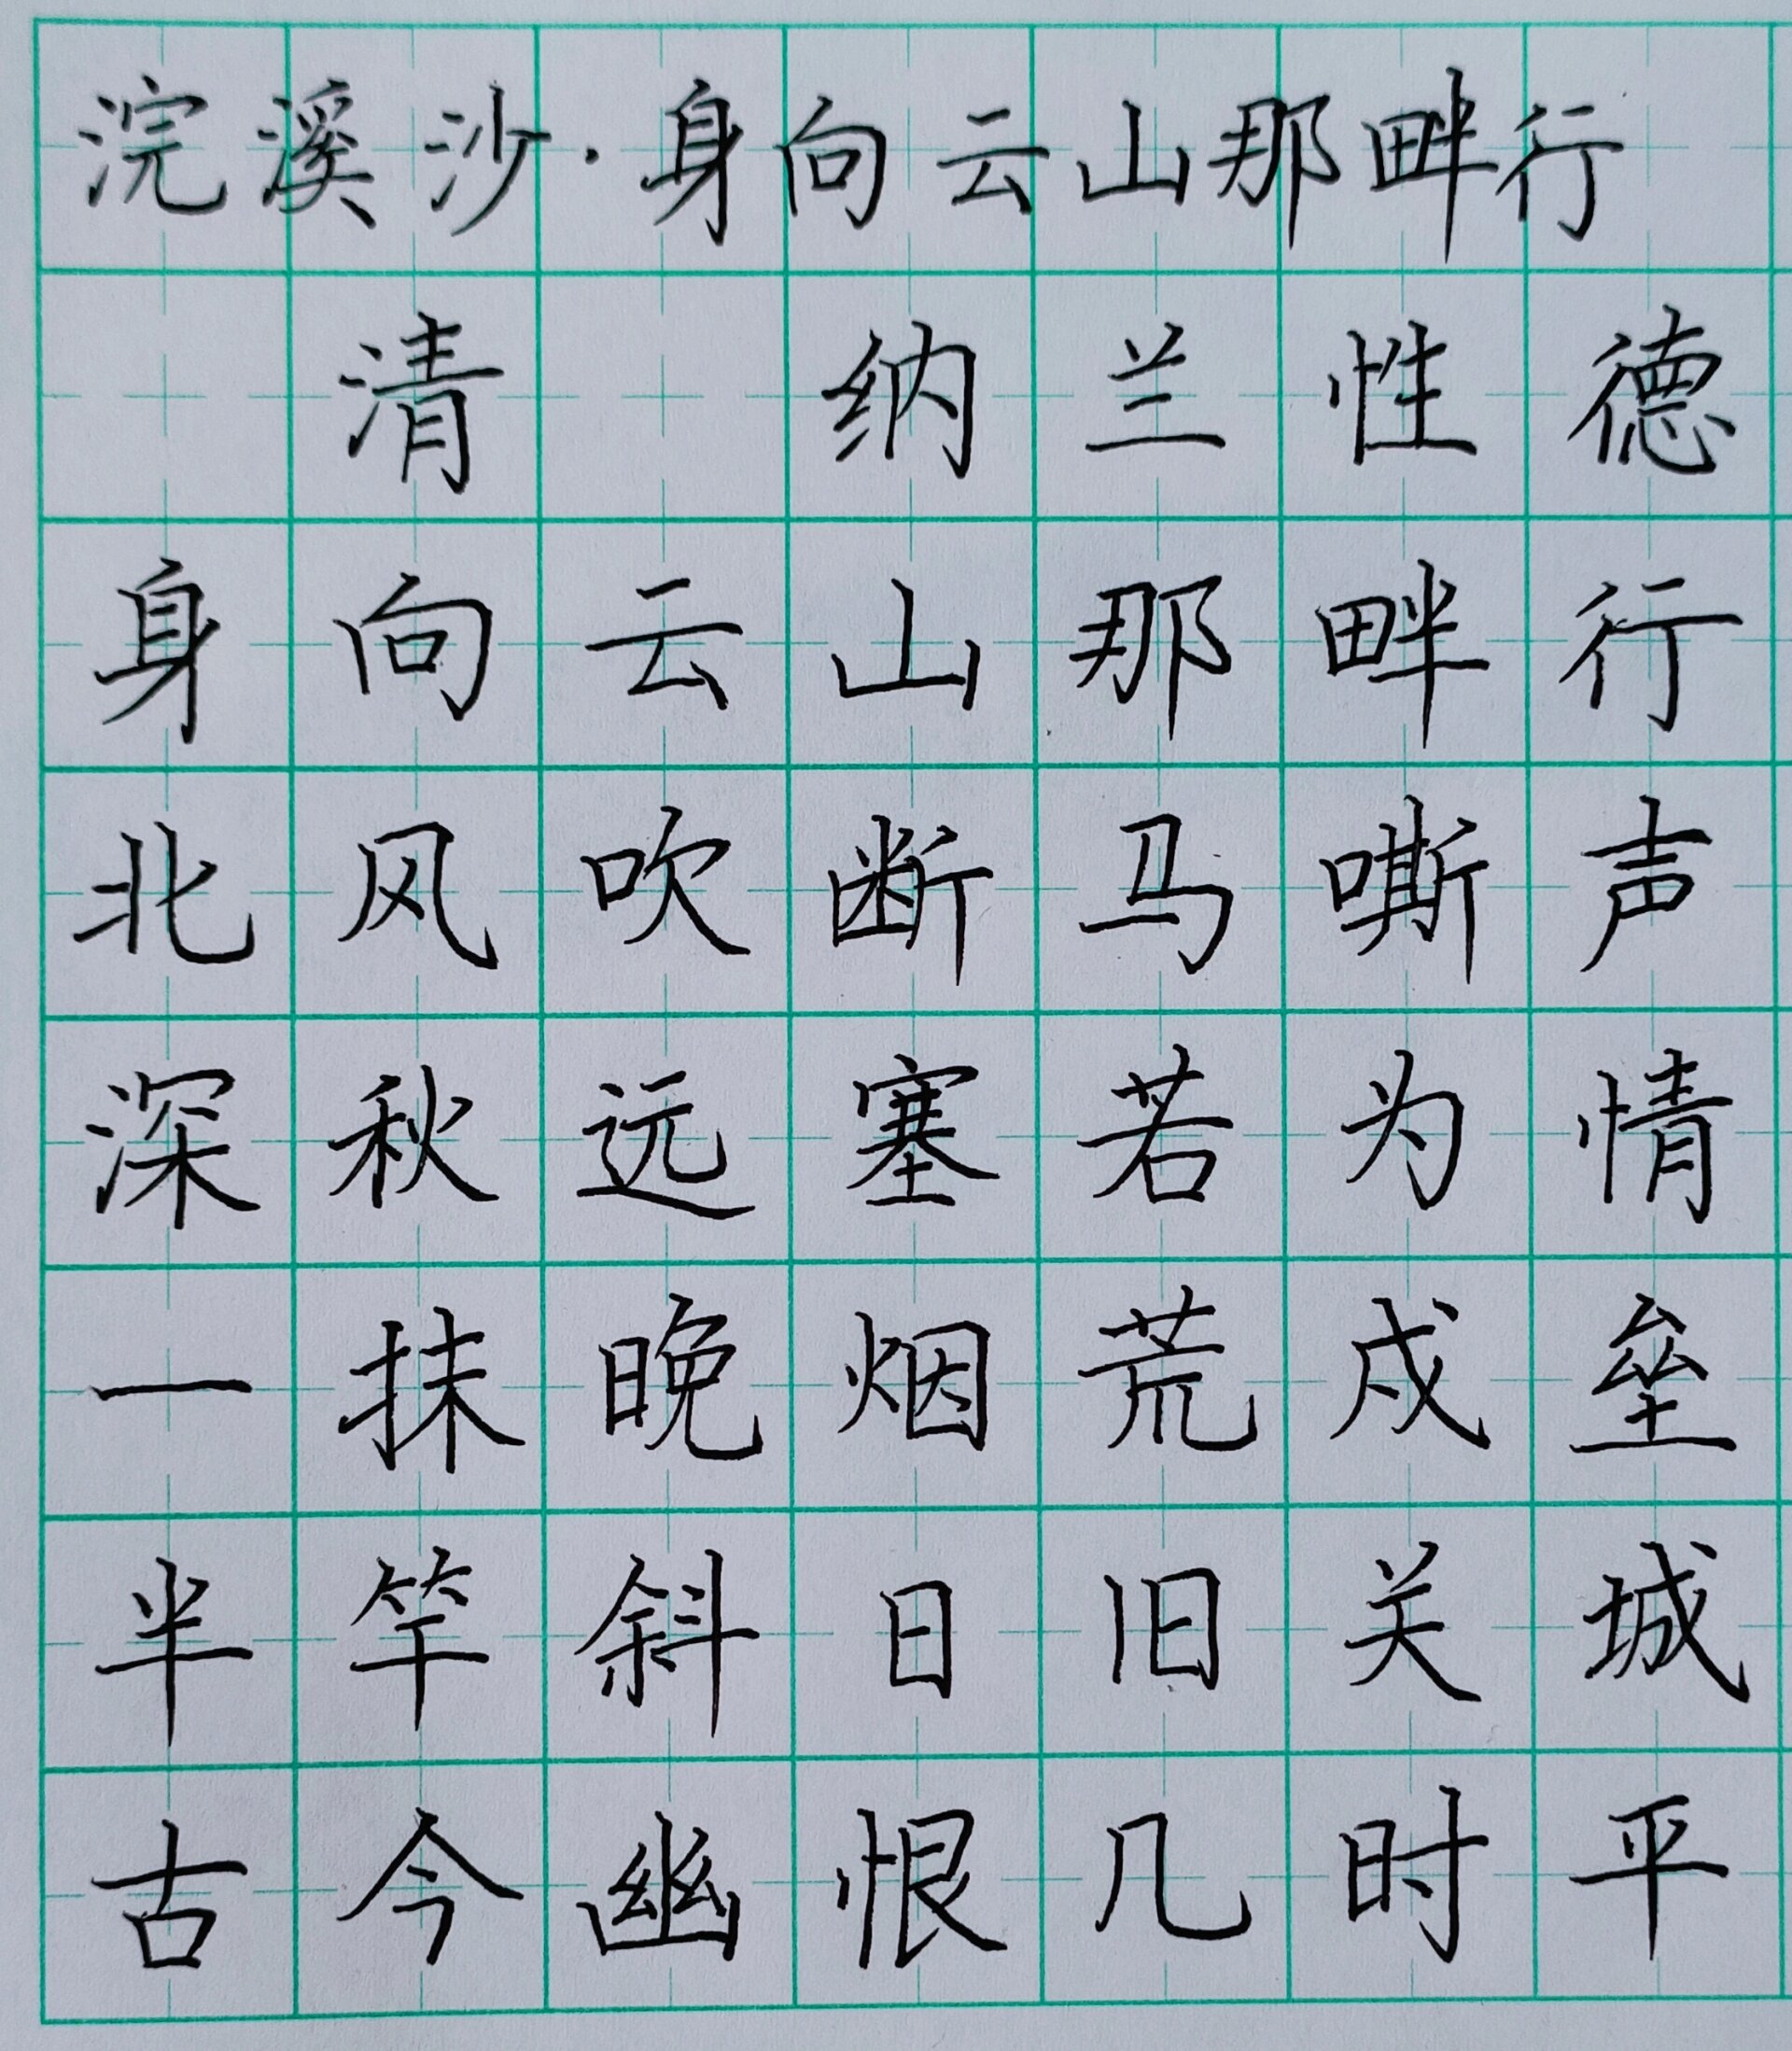 浣溪沙·身向云山那畔行
清 纳兰性德
身向云山那畔行
北风吹断马嘶声
深秋远塞若为情
一抹晚烟荒戍垒
半竿斜日旧关城
古今幽恨几时平